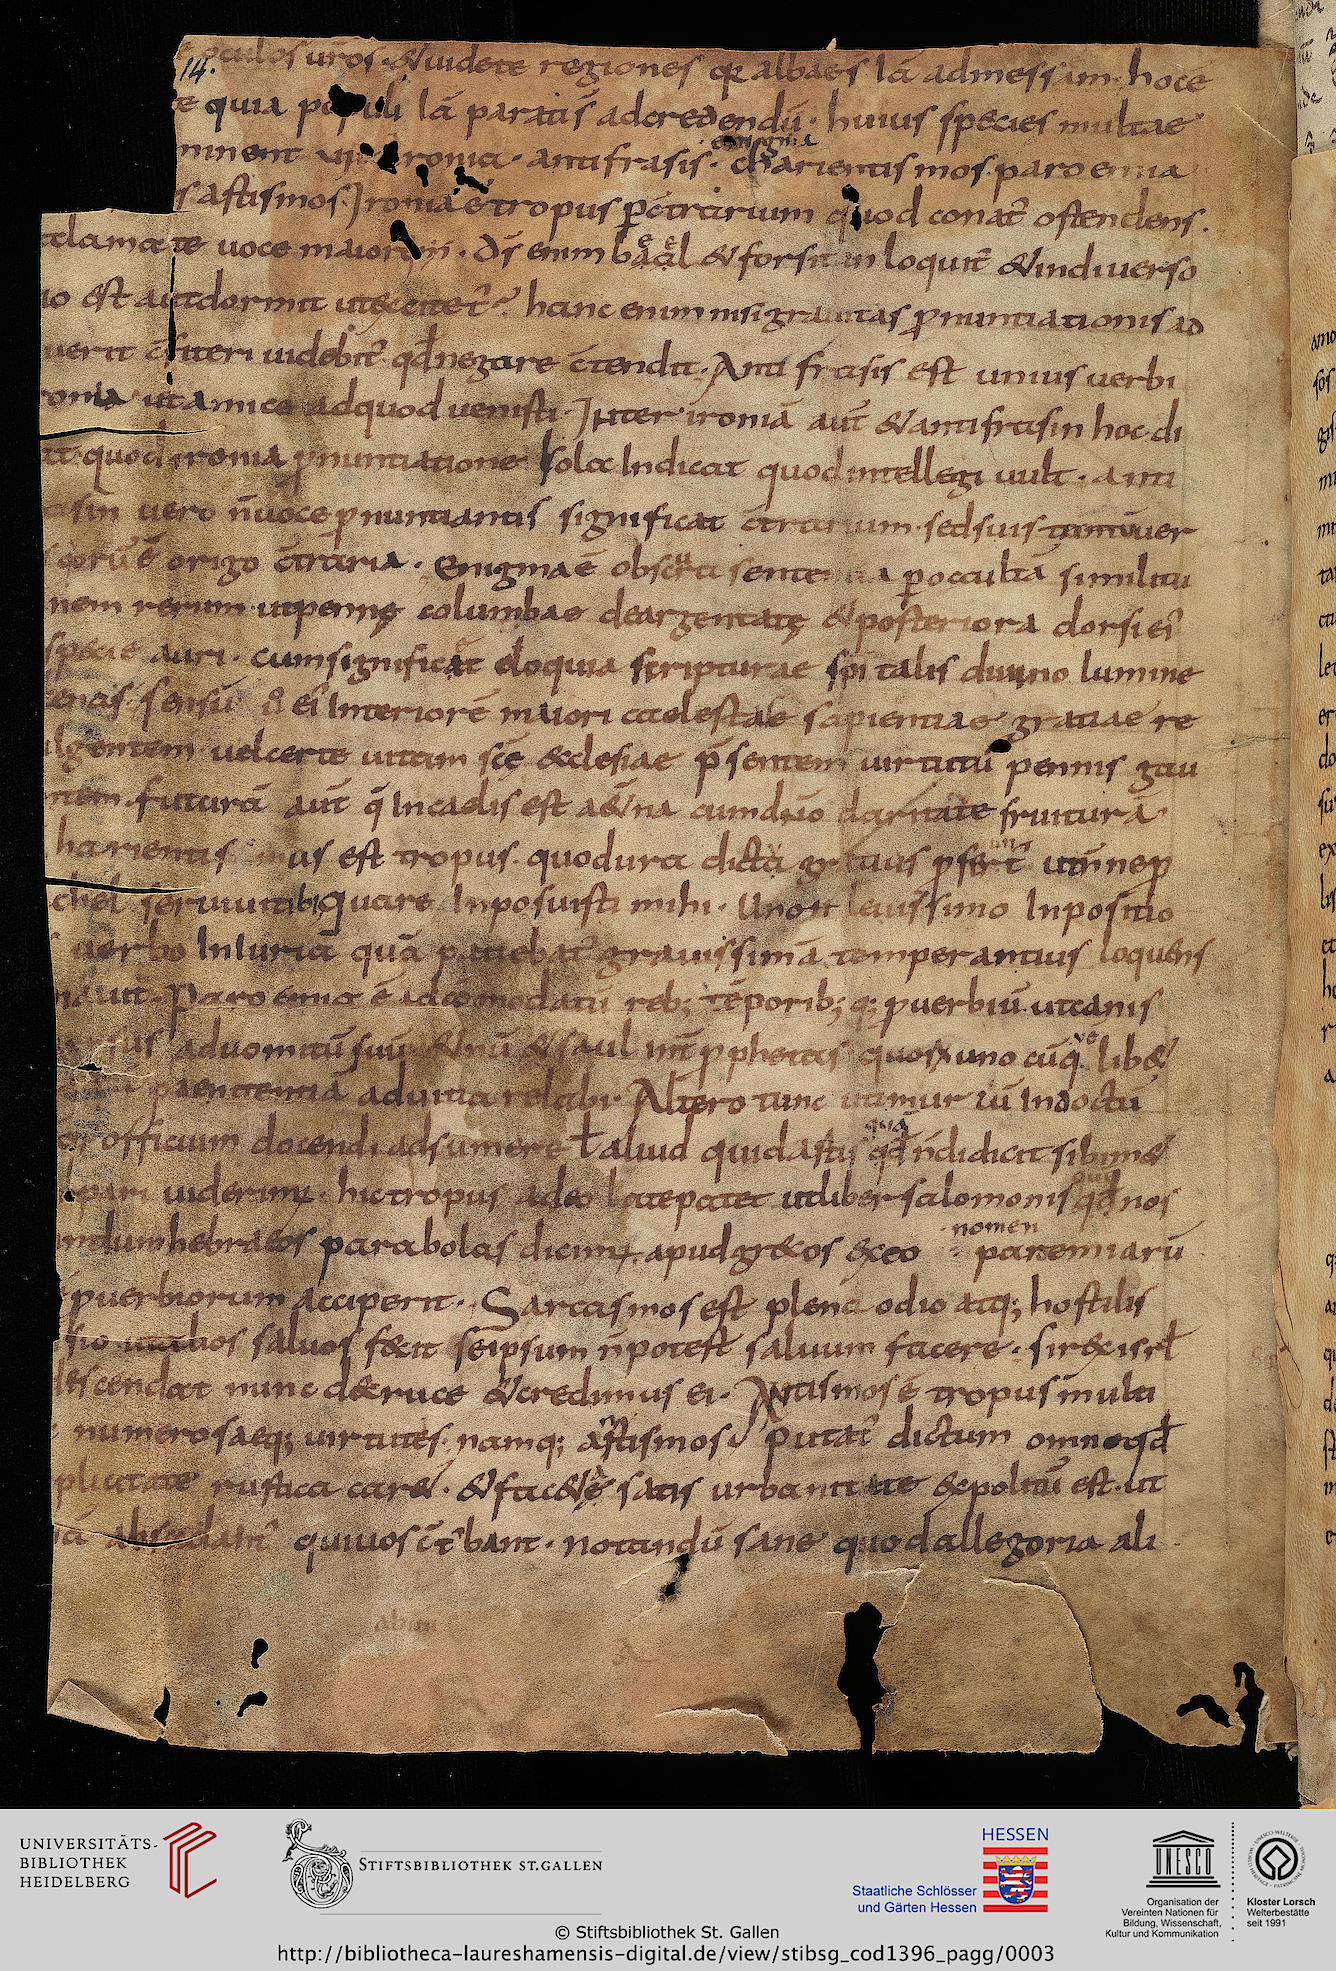 14.
oculos uros · & uidete regiones qr albaes iā admessem · hoc e
e quia populi iā parati s̄ adcredendū · huius species multae
minent ironia · antifrasis · charientismos · paroemia
enigma
s astismos · Ironia ē tropus p̄ ctrarium quod conat̄ ostendens ·
clamate uoce maiorem · d̄s enim baal & forsitan loquit̄ & indiuerso
io est aut dormit ut excitet̄ · hanc enim nisi grauitas p̄nuntiationis ad
uerit c̄fiteri uidebit̄ qd̄ negare c̄tendit · Antifrasis est unius uerbi
ronia ut amice adquod uenisti · Inter ironiā aut̄ & antifrasin hoc di
at quod ironia p̄nuntiatione sola Indicat quod intellegi uult · anti
asin uero n̄ uoce p̄nuntiantis significat c̄trarium · sed suis tantū uer
s quorū ē origo c̄traria · Enigma ē obscura sententia p̄ occultā similitu
nem rerum · ut pennę columbae deargentatę & posteriora dorsi eī
specie auri · cum significat eloquia scripturae spi talis diuino lumine
ena · sensū eī Interiorē maiori caelestae sapientiae gratiae re
lgentem uel certe uitam scę ecclesiae p̄sentem uirtutū pennis gau
ntem · futurā aut̄ q̄ In caelis est aet̄na cum dn̄o claritate fruitura
harientis mus est tropus · quo dura dictu gratius p̄fer̄t ut In nep
chel seruiui tibi Quare Inposuisti mihi · Uno leuissimo Inpositio
uerbo Iniuriā quā patiebat̄ grauissimā temperantius loquens
nauit · Paroemia ē adcomodatū reb; tēporib; q; p̄uerbiū ut canis
sus aduomitū suū & nū & saul int̄ p̄phetas quorx uno cuq; lib&
paenitentiā aduitia relabi · Altero tunc utimur cū Indoctū
officium docendi adsumere l̄ aliud quid artis qd̄ n̄ didicit sibim&
quā
pari uiderim; · hic tropus adeo late patet ut liber salomonis qd̄ nos
ndum hebraeos parabolas dicim; apud grecos ex eo paroemiarū
nomen
p̄uerbiorum acciperit · Sarcasmos est plena odio atq; hostilis
sio ut alios saluos fecit seipsum n̄ potest saluum facere · si rex isrl̄
descendat nunc decruce & credimus ei · Astismos ē tropus multi
numerosaeq; uirtutis · namq; astismos putat̄ dictum omne qd̄
plicitate rustica car& · & fac&a satis urbanitate expolitū est · ut
abscidant̄ qui uos c̄t̄bant · notandū sane quod allegoria ali
UNIVERSITÄTS-
BIBLIOTHEK
HEIDELBERG
STIFTSBIBLIOTHEK ST.GALLEN
HESSEN
Staatliche Schlösser
und Gärten Hessen
UNESCO
Organisation der
Vereinten Nationen für
Bildung, Wissenschaft,
Kultur und Kommunikation
Kloster Lorsch
Welterbestätte
seit 1991
© Stiftsbibliothek St. Gallen
http://bibliotheca-laureshamensis-digital.de/view/stibsg_cod1396_pagg/0003